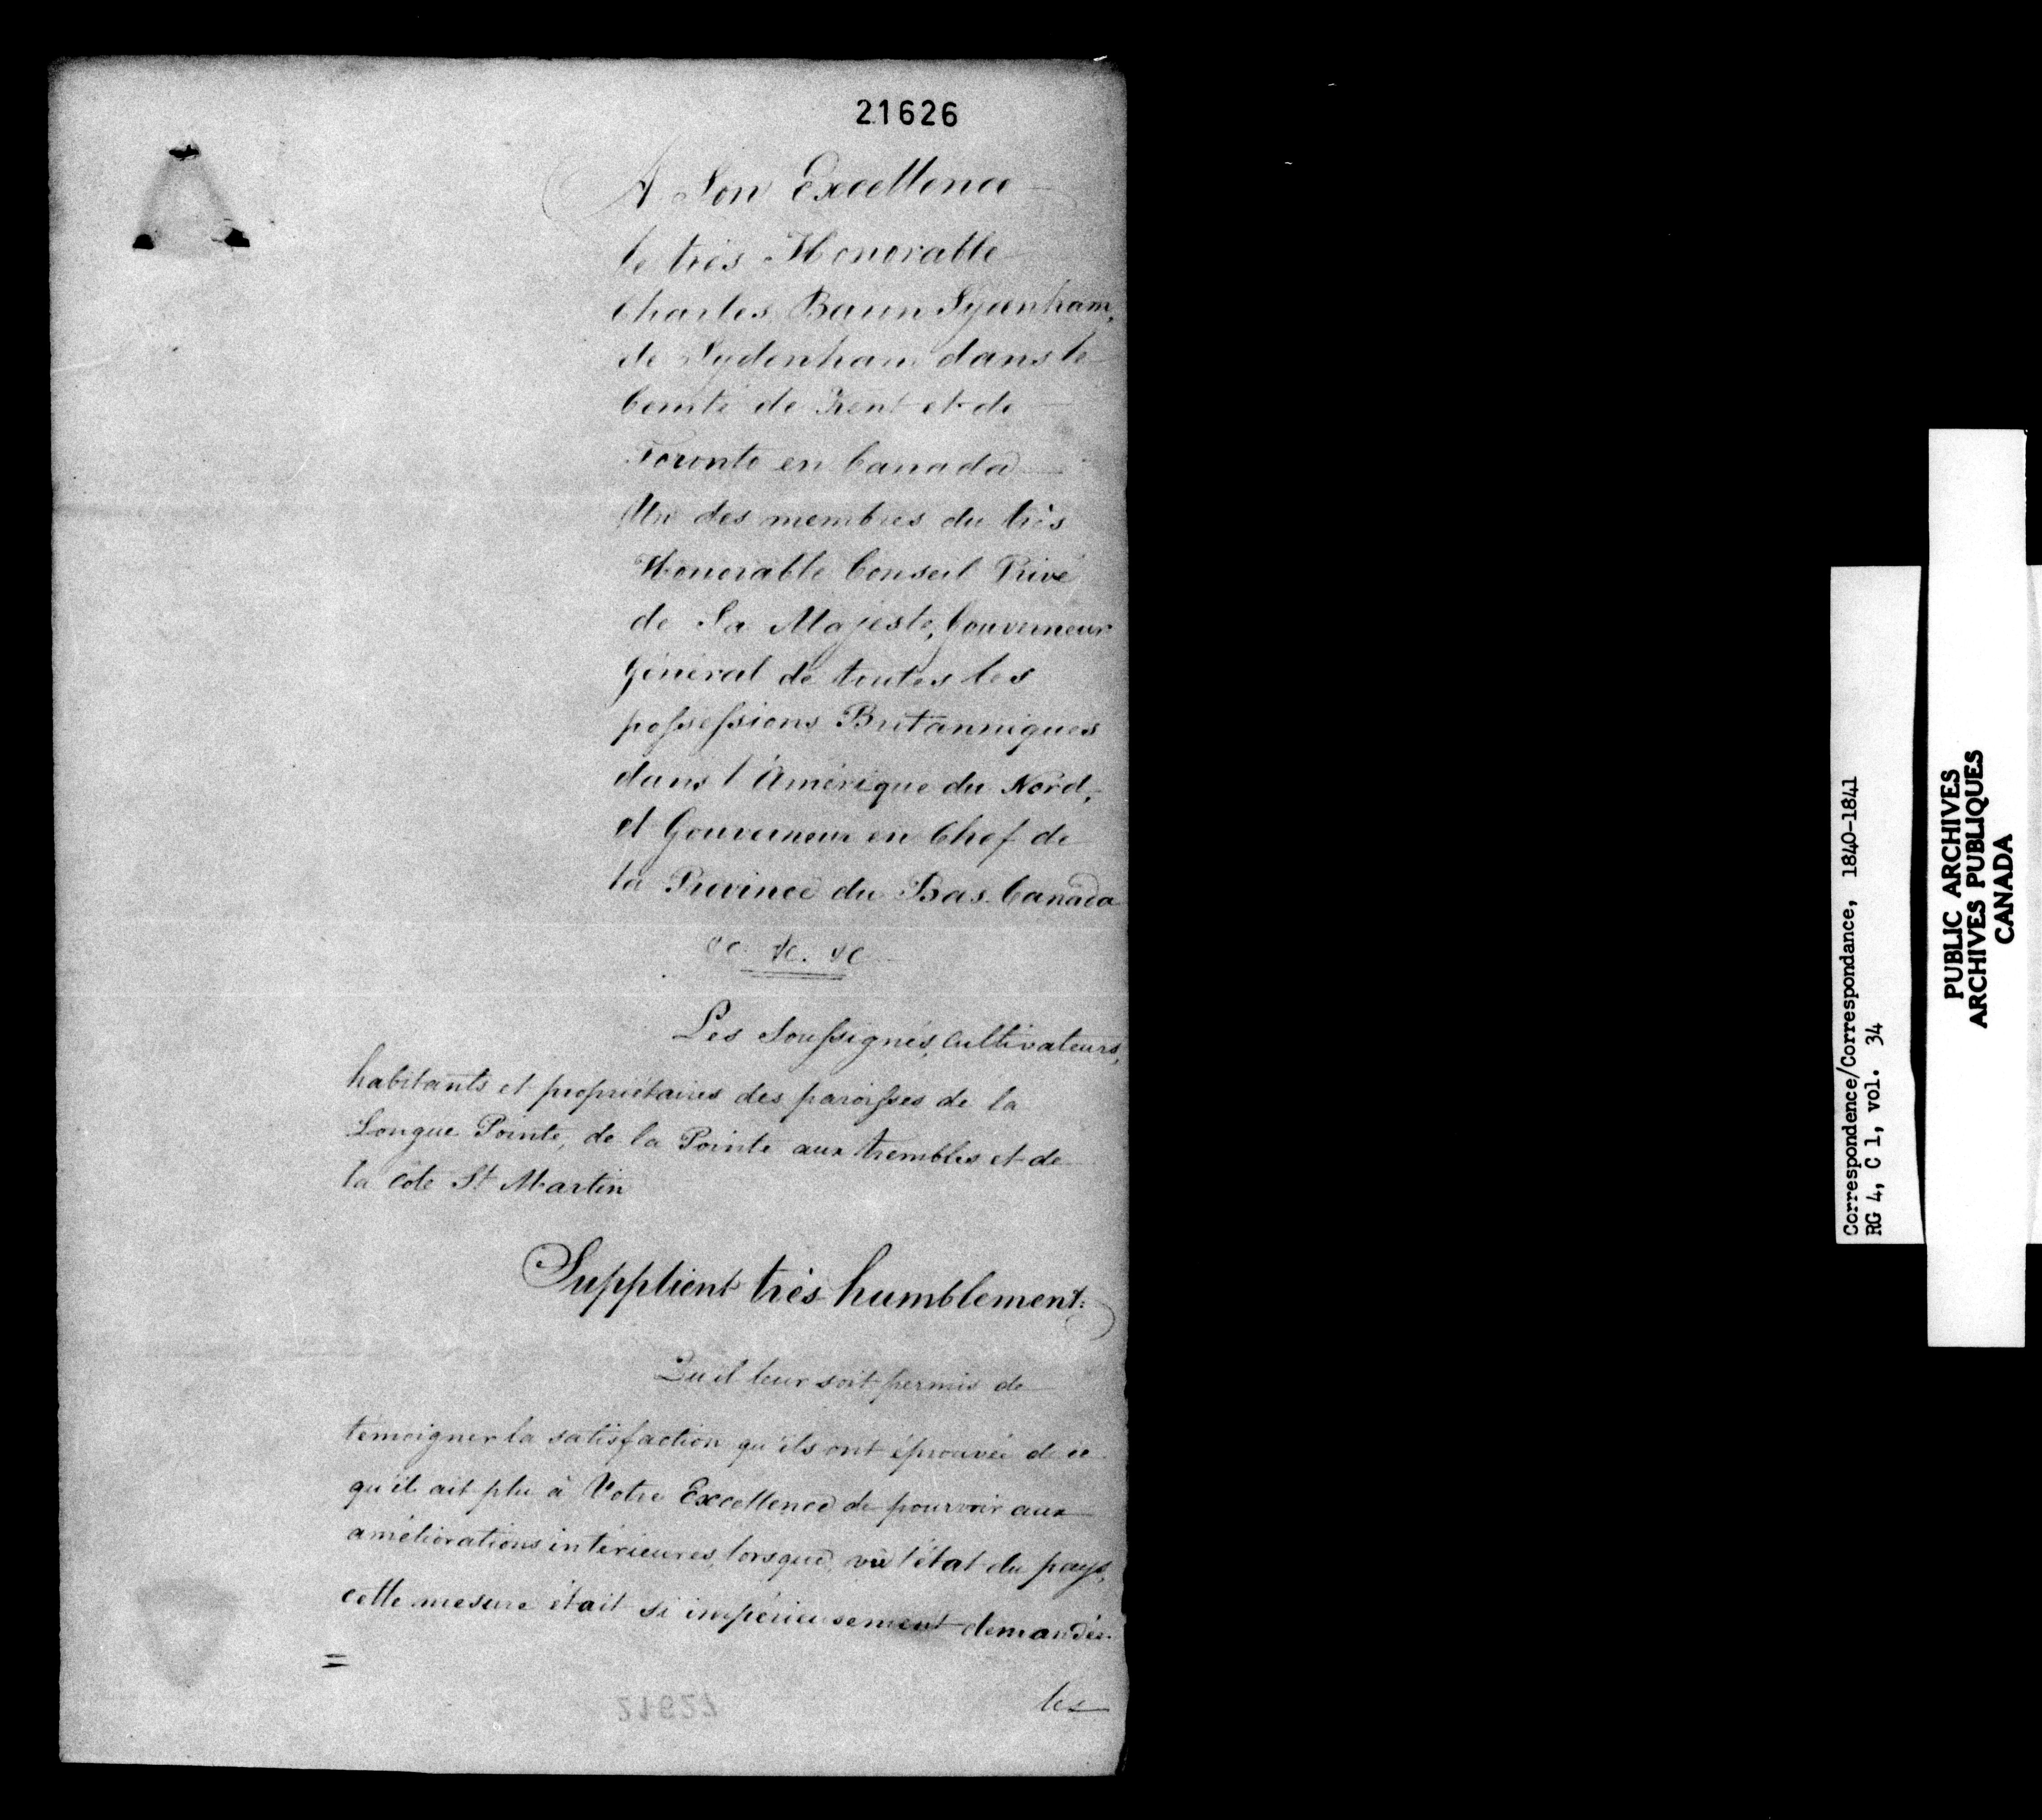 21626
A Son Excellence
le très Honorable
Charles Baron Sydenham,
de Sydenham dans le
Comté de Kent et de
Toronto en Canada
Un des membres du très
Honorable Conseil Privé
de Sa Majesté, Gouverneur
Général de toutes les
possessions Britanniques
dans l'Amérique du Nord,
et Gouverneur en Chef de
la Province du Bas Canada
&c. &c. &c
Les Soussignés, cultivateurs,
habitants et propriétaires des paroisses de la
Longue Pointe, de la Pointe aux trembles et de
la côte St Martin
Supplient très humblement:
Qu'il leur soit permis de
témoigner la satisfaction qu'ils ont éprouvée de ce
qu'il ait plu à Votre Excellence de pourvoir aux
améliorations intérieures, lorsque, vu l'état du pays,
cette mesure était si impérieusement demandée.
les
21627
Correspondence/Correspondance, 1840-1841
RG 4, C 1, vol. 34
PUBLIC ARCHIVES
ARCHIVES PUBLIQUES
CANADA